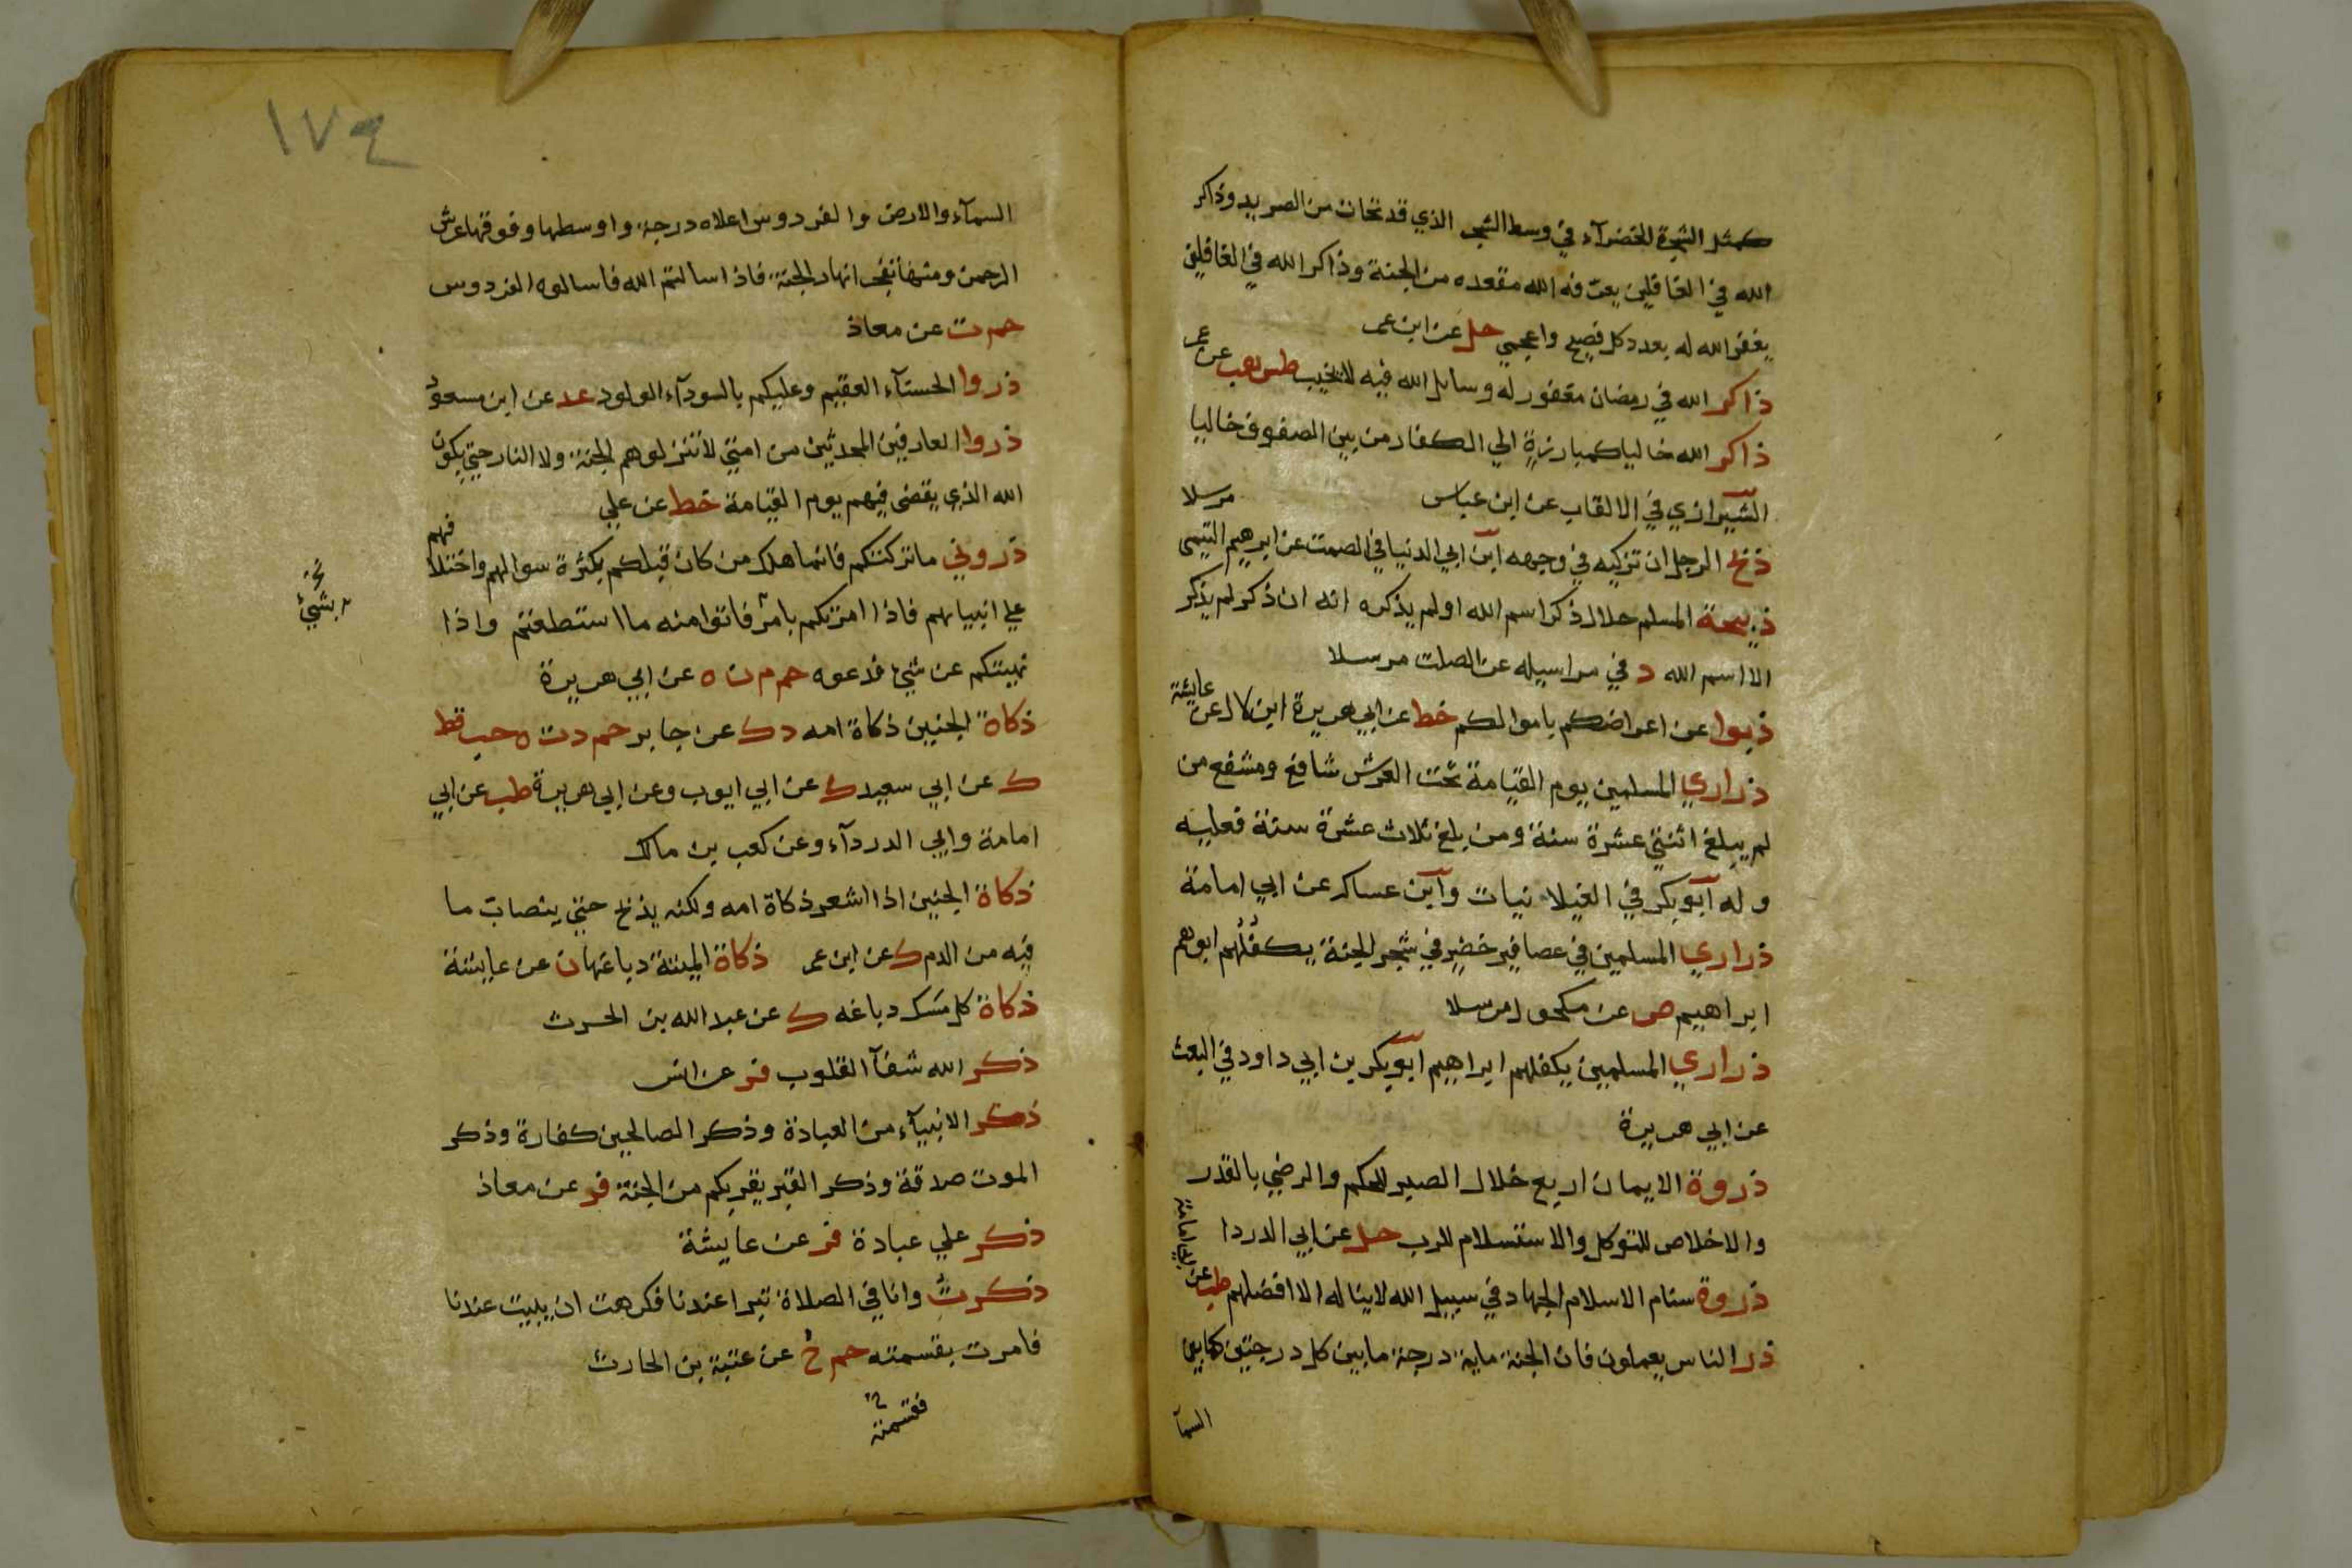 كمثل الشجرة الخضرآء في وسط الشجر الذي قد تحات من الصريد وذاكر
الله في الغافلين يعرفه الله مقعده من الجنة وذاكر الله في الغافلين
يغفر الله له بعدد كل فصيح واعجمي حل عن ابن عمر
ذاكر الله في رمضان مغفور له وسايل الله فيه لا يخيب طس هب عن عمر
ذاكر الله خاليا كمبارزة الي الكفار من بين الصفوف خاليا
الشيرازي في الالقاب عن ابن عباس
ذبح الرجل ان تزكيه في وجهه ابن ابي الدنيا في الصمت عن ابرهيم التيمى مرسلا
ذبيحة المسلم حلال ذكر اسم الله او لم يذكره انه ان ذكر لم يذكر
الا اسم الله د في مراسيله عن الصلت مرسلا
ذبوا عن اعراضكم باموالكم خط عن ابي هريرة ابن لال عن عايشة
ذراري المسلمين يوم القيامة تحت العرش شافع ومشفع من
لم يبلغ اثنتي عشرة سنة ومن بلغ ثلاث عشرة سنة فعليه
وله ابو بكر في الغيلانيات وابن عساكر عن ابي امامة
ذراري المسلمين في عصافير خضر في شجر الجنة يكفلهم ابوهم
ابراهيم ص عن مكحول مرسلا
ذراري المسلمين يكفلهم ابراهيم ابو بكر بن ابي داود في البعث
عن ابي هريرة
ذروة الايمان اربع خلال الصبر للحكم والرضي بالقدر
والاخلاص للتوكل والاستسلام للرب حل عن ابي الدردا
ذروة سنام الاسلام الجهاد في سبيل الله لا يناله الا افضلهم طب عن ابي امامة
ذر الناس يعملون فان الجنة ماية درجة ما بين كل درجتين كما بين
السمآ
١٧٤
السمآء والارض والفردوس اعلاه درجة واوسطها وفوقها عرش
الرحمن ومنها تفجر انهار الجنة فاذا سالتم الله فاسالوه الفردوس
حم ت عن معاذ
ذروا الحسنآء العقيم وعليكم بالسودآء الولود عد عن ابن مسعود
ذروا العارفين المحدثين من امتي لا تنزلوهم الجنة ولا النار حتي يكون
الله الذي يقضى فيهم يوم القيامة خط عن علي
ذروني ما تركتكم فانما هلك من كان قبلكم بكثرة سوالهم واختلافهم
علي انبيايهم فاذا امرتكم بامر فاتوا منه ما استطعتم واذا
بشيء
نهيتكم عن شيء فدعوه حم م ن ه عن ابي هريرة
ذكاة الجنين ذكاة امه د ك عن جابر حم د ت ه حب قط
ك عن ابي سعيد ك عن ابي ايوب وعن ابي هريرة طب عن ابي
امامة وابي الدردآء وعن كعب بن مالك
ذكاة الجنين اذا اشعر ذكاة امه ولكنه يذبح حتي ينصاب ما
فيه من الدم ك عن ابن عمر ذكاة الميتة دباغها ن عن عايشة
ذكاة كل مسك دباغه ك عن عبد الله بن الحرث
ذكر الله شفآ القلوب فر عن انس
ذكر الانبيآء من العبادة وذكر الصالحين كفارة وذكر
الموت صدقة وذكر القبر يقربكم من الجنة فر عن معاذ
ذكر علي عبادة فر عن عايشة
ذكرت وانا في الصلاة تبرا عندنا فكرهت ان يبيت عندنا
فامرت بقسمته حم خ عن عتبة بن الحارث
فقسمته